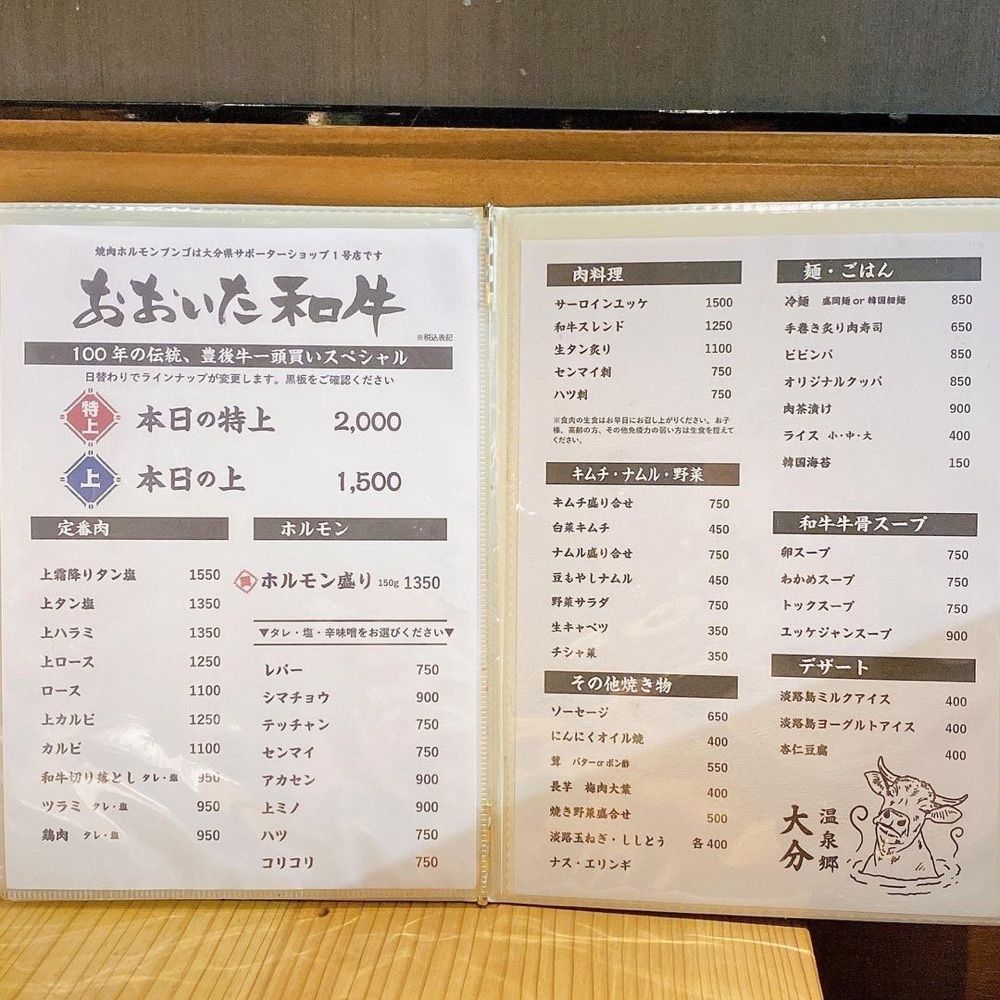 焼肉ホルモンブンゴは大分県サポーターショップ1号店です
おおいた和牛
※税込表記
100年の伝統、豊後牛一頭買いスペシャル
日替わりでラインナップが変更します。黒板をご確認ください
特上 本日の特上 2,000
上 本日の上 1,500
定番肉
上霜降りタン塩 1550
上タン塩 1350
上ハラミ 1350
上ロース 1250
ロース 1100
上カルビ 1250
カルビ 1100
和牛切り落とし タレ・塩 950
ツラミ タレ・塩 950
鶏肉 タレ・塩 950
ホルモン
ホルモン盛り 150g 1350
▼タレ・塩・辛味噌をお選びください▼
レバー 750
シマチョウ 900
テッチャン 750
センマイ 750
アカセン 900
上ミノ 900
ハツ 750
コリコリ 750
肉料理
サーロインユッケ 1500
和牛スレンド 1250
生タン炙り 1100
センマイ刺 750
ハツ刺 750
※食肉の生食はお早目にお召し上がりください。お子
様、高齢の方、その他免疫力の弱い方は生食を控えて
ください。
キムチ・ナムル・野菜
キムチ盛り合せ 750
白菜キムチ 450
ナムル盛り合せ 750
豆もやしナムル 450
野菜サラダ 750
生キャベツ 350
チシャ菜 350
その他焼き物
ソーセージ 650
にんにくオイル焼 400
茸 バターorポン酢 550
長芋 梅肉大葉 400
焼き野菜盛合せ 500
淡路玉ねぎ・ししとう 各400
ナス・エリンギ
麺・ごはん
冷麺 盛岡麺or韓国細麺 850
手巻き炙り肉寿司 650
ビビンバ 850
オリジナルクッパ 850
肉茶漬け 900
ライス 小・中・大 400
韓国海苔 150
和牛牛骨スープ
卵スープ 750
わかめスープ 750
トックスープ 750
ユッケジャンスープ 900
デザート
淡路島ミルクアイス 400
淡路島ヨーグルトアイス 400
杏仁豆腐 400
温泉郷
大分